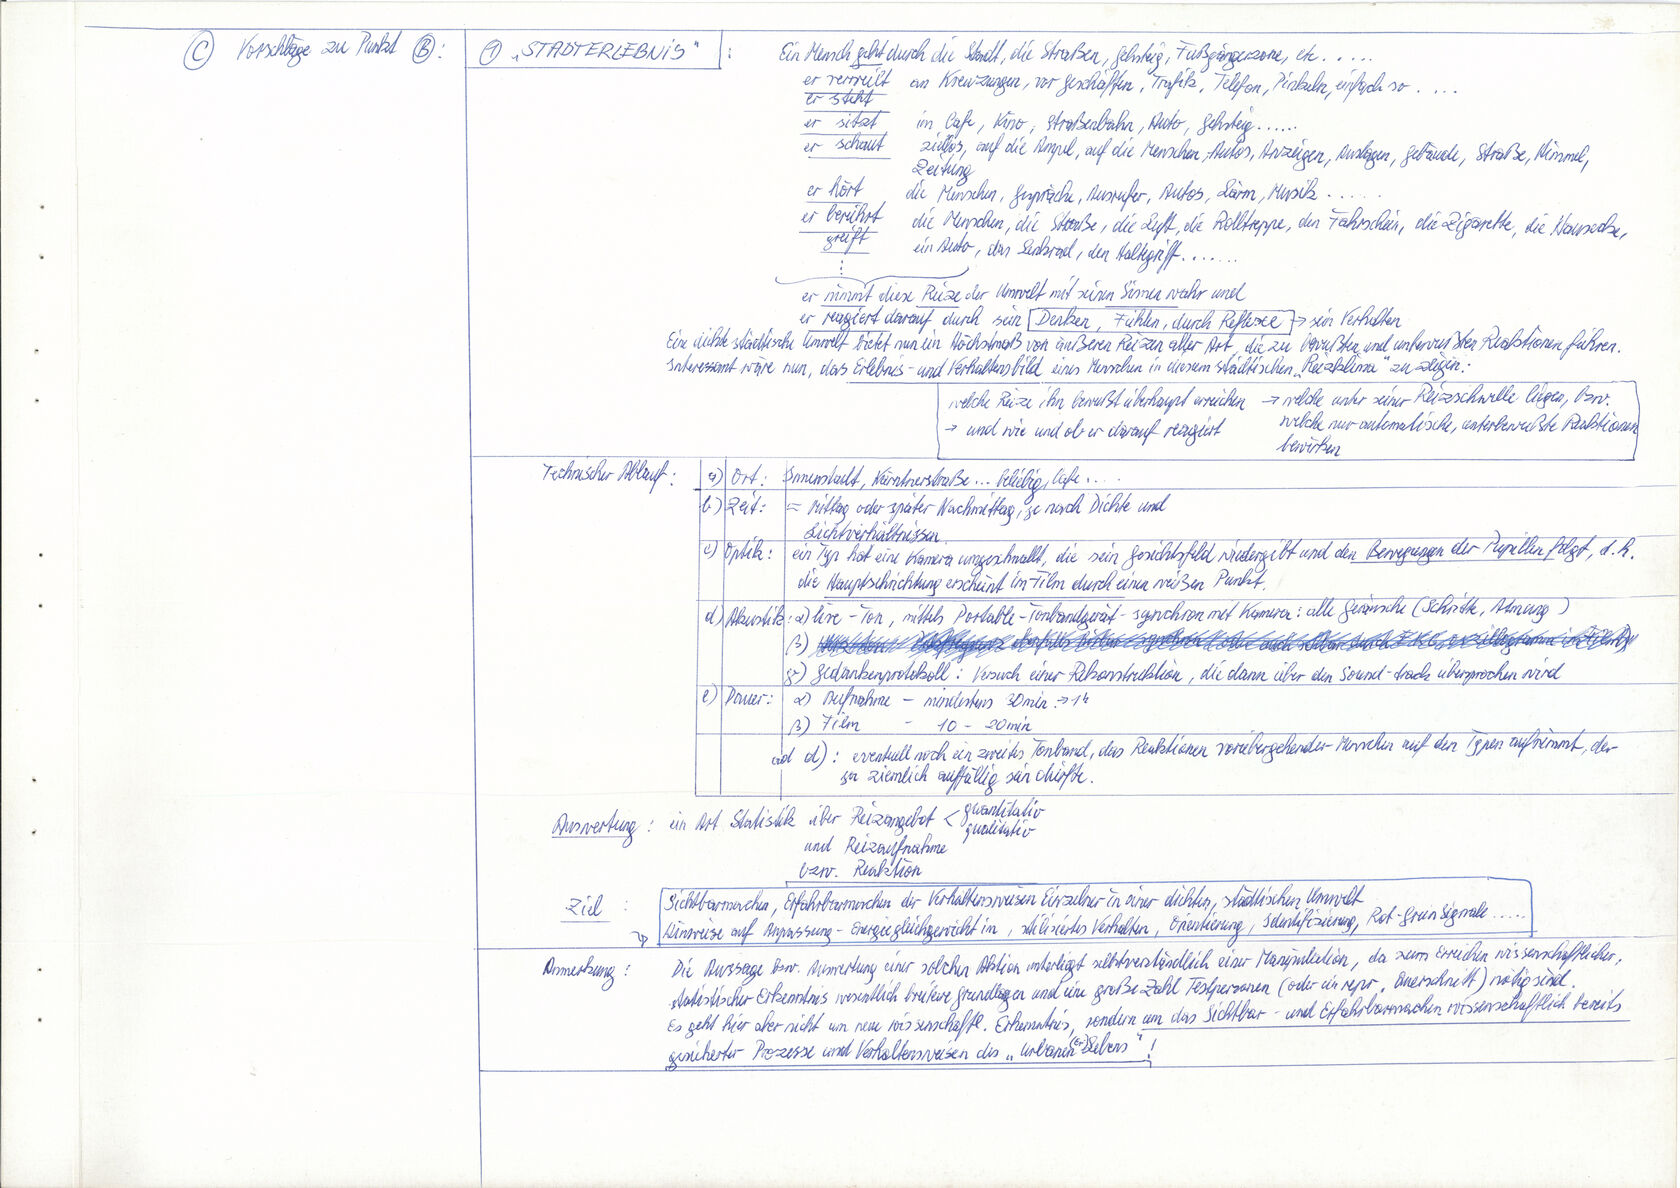 Ⓒ Vorschläge zu Punkt Ⓑ: ① „STADTERLEBNIS“ : Ein Mensch geht durch die Stadt, die Straßen, Gehsteig, Fußgängerzone, etc. . . . . .
er verweilt an Kreuzungen, vor Geschäften, Trafik, Telefon, Pinkeln, einfach so . . . .
er steht
er sitzt im Cafe, Kino, Straßenbahn, Auto, Gehsteig......
er schaut ziellos, auf die Ampel, auf die Menschen, Autos, Anzeigen, Auslagen, Gebäude, Straße, Himmel,
Zeitung
er hört die Menschen, Gespräche, Ausrufer, Autos, Lärm, Musik . . . . . .
er berührt die Menschen, die Straße, die Luft, die Rolltreppe, den Fahrschein, die Zigarette, die Hausecke,
greift ein Auto, das Lenkrad, den Haltegriff.......
er nimmt diese Reize der Umwelt mit seinen Sinnen wahr und
er reagiert darauf durch sein Denken, Fühlen, durch Reflexe → sein Verhalten
Eine dichte städtische Umwelt bietet nun ein Höchstmaß von äußeren Reizen aller Art, die zu bewußten und unbewußten Reaktionen führen.
Interessant wäre nun, das Erlebnis- und Verhaltensbild eines Menschen in diesem städtischen „Reizklima“ zu zeigen:
welche Reize ihn bewußt überhaupt erreichen → welche unter seiner Reizschwelle liegen, bzw.
→ und wie und ob er darauf reagiert welche nur automatische, unterbewußte Reaktionen
bewirken
Technischer Ablauf: a) Ort: Innenstadt, Kärntnerstraße... beliebig, Cafe . . . .
b) Zeit: ≈ Mittag oder später Nachmittag, je nach Dichte und
Lichtverhältnissen
c) Optik: ein Typ hat eine Kamera umgeschnallt, die sein Gesichtsfeld wiedergibt und den Bewegungen der Pupillen folgt, d.h.
die Hauptsehrichtung erscheint im Film durch einen weißen Punkt.
d) Akustik: α) live-Ton, mittels Portable-Tonbandgerät - synchron mit Kamera: alle Geräusche (Schritte, Atmung)
β)
γ) Gedankenprotokoll: Versuch einer Rekonstruktion, die dann über den Sound-track übersprochen wird
e) Dauer: α) Aufnahme - mindestens 30min → 1h
β) Film - 10 - 20min
ad d): eventuell noch ein zweites Tonband, das Reaktionen vorübergehender Menschen auf den Typen aufnimmt, der
ja ziemlich auffällig sein dürfte.
Auswertung: ein Art Statistik über Reizangebot < quantitativ
qualitativ
und Reizaufnahme
bzw. Reaktion
Ziel : Sichtbarmachen, Erfahrbarmachen der Verhaltensweisen Einzelner in einer dichten, städtischen Umwelt
Hinweise auf Anpassung - Energiegleichgewicht in, stilisiertes Verhalten, Orientierung, Identifizierung, Rot-Grün Signale.....
Anmerkung: Die Aussage bzw. Auswertung einer solchen Aktion unterliegt selbstverständlich einer Manipulation, da zum Erreichen wissenschaftlicher,
statistischer Erkenntnis wesentlich breitere Grundlagen und eine große Zahl Testpersonen (oder ein repr. Querschnitt) nötig sind.
Es geht hier aber nicht um neue wissenschaftl. Erkenntnis, sondern um das Sichtbar- und Erfahrbarmachen wissenschaftlich bereits
gesicherter Prozesse und Verhaltensweisen des „urbanen (Er)Lebens“ !